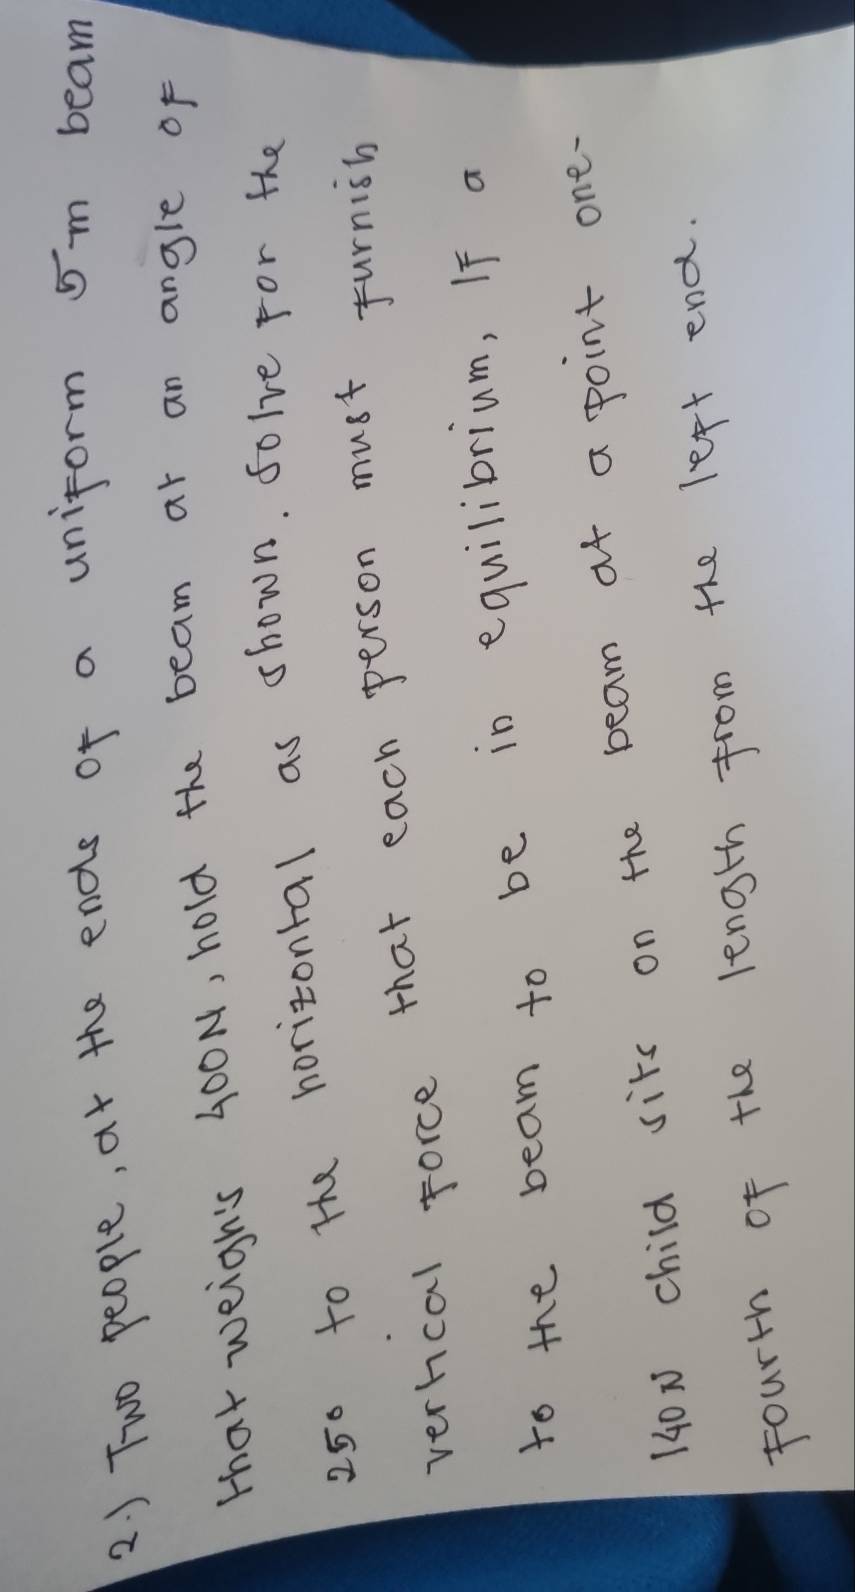 2.) Two people, at the ends of a uniform 5-m beam
that weighs 400N, hold the beam at an angle of
25° to the horizontal as shown. Solve for the
vertical force that each person must furnish
to the beam to be in equilibrium, If a
140N child sits on the beam at a point one-
fourth of the length from the left end.